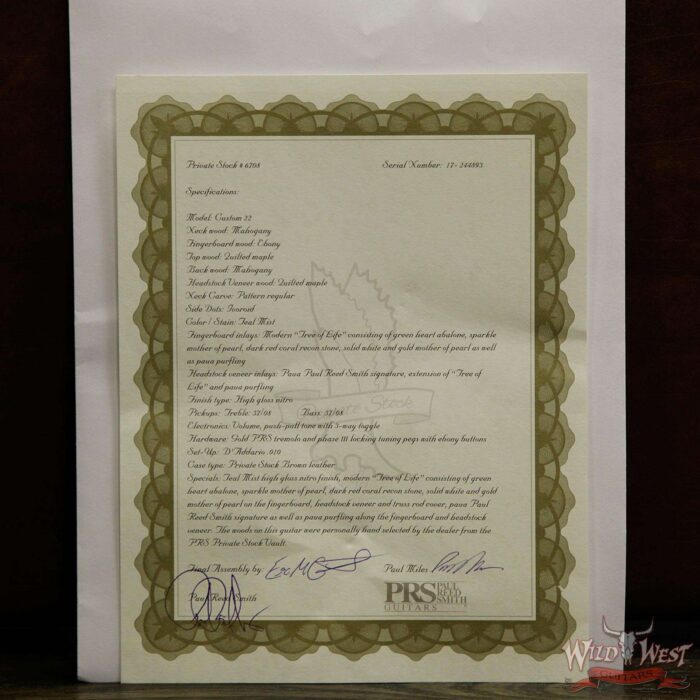 Private Stock # 6708 Serial Number: 17-244893
Specifications:
Model: Custom 22
Neck wood: Mahogany
Fingerboard wood: Ebony
Top wood: Quilted maple
Back wood: Mahogany
Headstock Veneer wood: Quilted maple
Neck Carve: Pattern regular
Side Dots: Ivoroid
Color / Stain: Teal Mist
Fingerboard inlays: Modern "Tree of Life" consisting of green heart abalone, sparkle
mother of pearl, dark red coral recon stone, solid white and gold mother of pearl as well
as paua purfling
Headstock veneer inlays: Paua Paul Reed Smith signature, extension of "Tree of
Life" and paua purfling
Finish type: High gloss nitro
Pickups: Treble: 57/08 Bass: 57/08
Electronics: Volume, push-pull tone with 3-way toggle
Hardware: Gold PRS tremolo and phase III locking tuning pegs with ebony buttons
Set-Up: D'Addario .010
Case type: Private Stock Brown leather
Specials: Teal Mist high gloss nitro finish, modern "Tree of Life" consisting of green
heart abalone, sparkle mother of pearl, dark red coral recon stone, solid white and gold
mother of pearl on the fingerboard, headstock veneer and truss rod cover, paua Paul
Reed Smith signature as well as paua purfling along the fingerboard and headstock
veneer. The woods on this guitar were personally hand selected by the dealer from the
PRS Private Stock Vault.
Final Assembly by: Paul Miles
Paul Reed Smith
PRS PAUL REED SMITH
GUITARS
WILD WEST
GUITARS